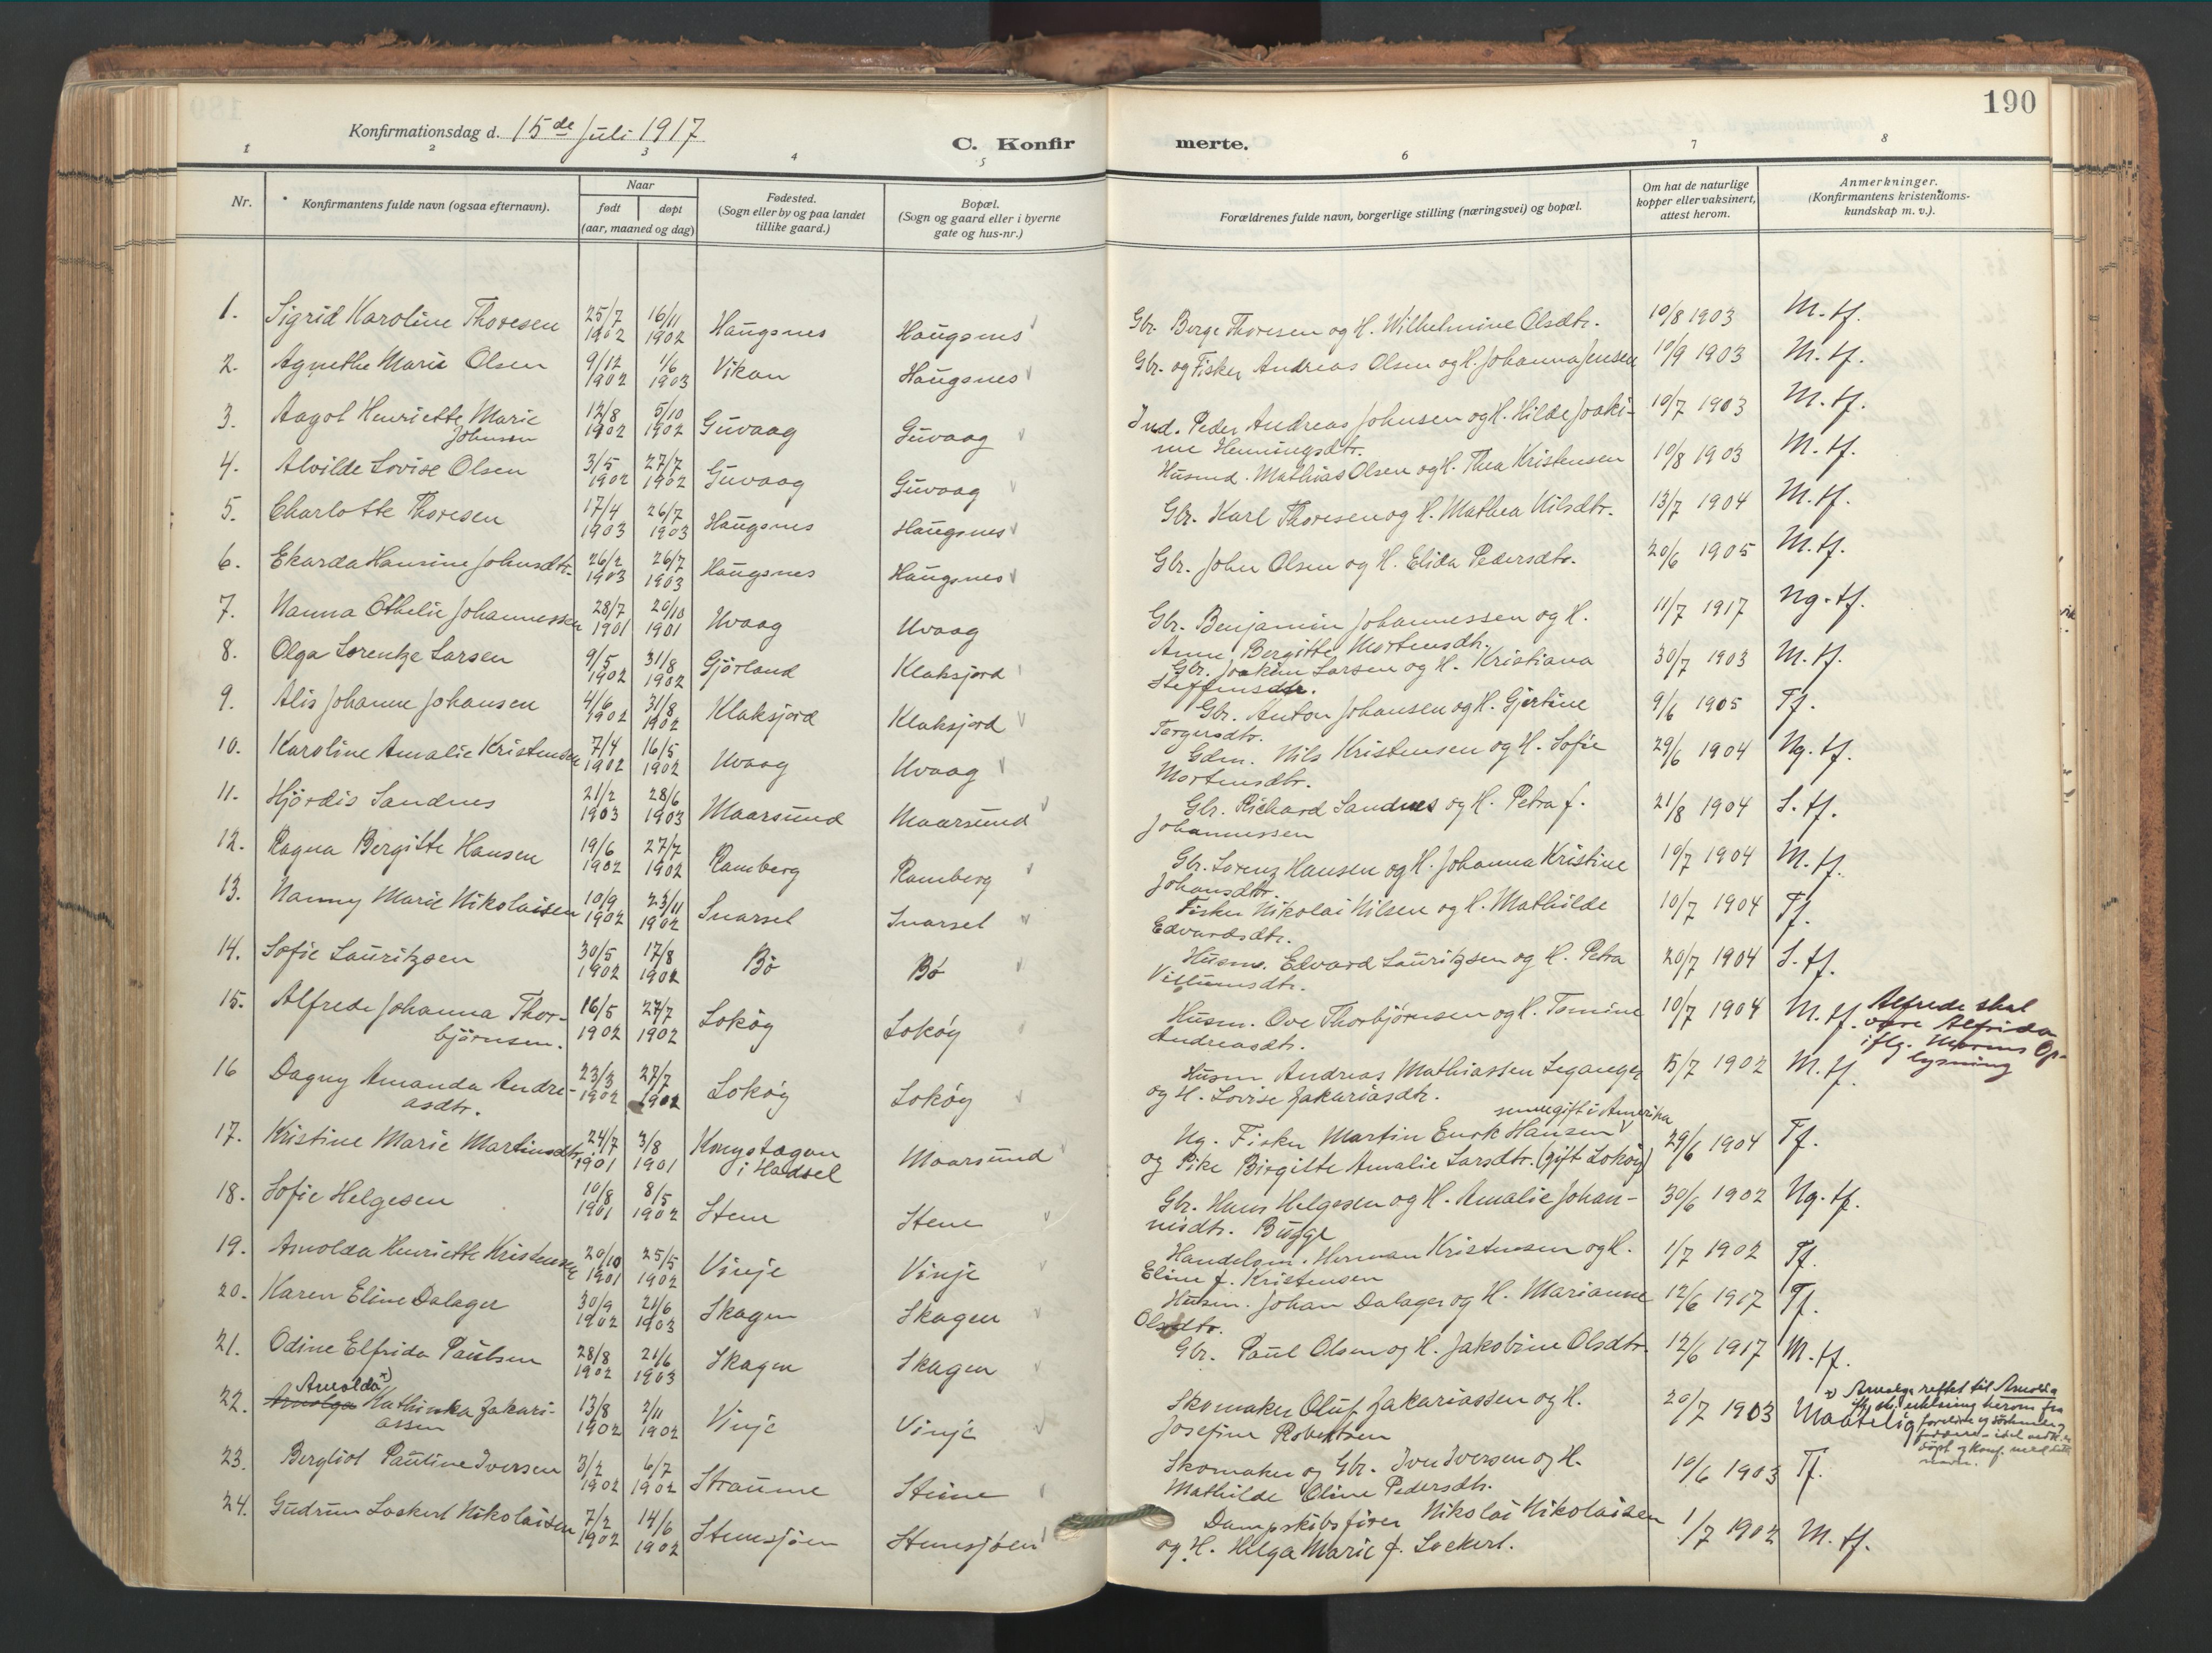 190
Konfirmationsdag d. 15de Juli 1917
C. Konfirmerte.
1 2 3 4 5 6 7 8
Nr.
Konfirmantens fulde navn (ogsaa efternavn).
Naar
født døpt
(aar, maaned og dag)
Fødested.
(Sogn eller by og paa landet
tillike gaard.)
Bopæl.
(Sogn og gaard eller i byerne
gate og hus-nr.)
Forældrenes fulde navn, borgerlige stilling (næringsvei) og bopæl.
Om hat de naturlige
kopper eller vaksinert,
attest herom.
Anmerkninger.
(Konfirmantens kristendoms-
kundskap m. v.).
1. Sigrid Karoline Thoresen 25/7 1902 16/11 1902 Haugsnes Haugsnes Gbr. Berge Thoresen og H. Wilhelmine Olsdtr. 10/8 1903 M. tf.
2. Agnethe Marie Olsen 9/12 1902 1/6 1903 Vikan Haugsnes Gbr. og Fisker Andreas Olsen og H. Johanna Jensen 10/9 1903 M. tf.
3. Aagot Henriette Marie 12/8 1902 5/10 1902 Guvaag Guvaag Ind. Peder Andreas Johnsen og H. Hilde Joaki- 10/7 1903 M. tf.
Johnsen
ne Henningsdtr.
4. Alvilde Lovise Olsen 3/5 1902 27/7 1902 Guvaag Guvaag Husmd. Mathias Olsen og H. Thea Kristensen 10/8 1903 M. tf.
5. Charlotte Thoresen 17/4 1903 26/7 1903 Haugsnes Haugsnes Gbr. Karl Thoresen og H. Mathea Nilsdtr. 13/7 1904 M. tf.
6. Ekarda Hansine Johnsdtr. 26/2 1903 26/7 1903 Haugsnes Haugsnes Gbr. John Olsen og H. Elida Pedersdtr. 20/6 1905 M. tf.
7. Nanna Othelie Johannessen 28/7 1901 20/10 1901 Uvaag Uvaag Gbr. Benjamin Johannessen og H. 11/7 1917 Ng. tf.
Anne Bergitte Mortensdtr.
8. Olga Lorentze Larsen 9/5 1902 31/8 1902 Gjörland Klaksjord Gbr. Joakim Larsen og H. Kristiana 30/7 1903 M. tf.
Steffensdtr.
9. Alis Johanne Johansen 4/6 1902 31/8 1902 Klaksjord Klaksjord Gbr. Anton Johansen og H. Gjertine 9/6 1905 Tf.
Torgersdtr.
10. Karoline Amalie Kristensen 7/4 1902 16/5 1902 Uvaag Uvaag Gdm. Nils Kristensen og H. Sofie 29/6 1904 Ng. tf.
Mortensdtr.
11. Hjördis Sandnes 21/2 1903 28/6 1903 Maarsund Maarsund Gbr. Richard Sandnes og H. Petra f. 21/8 1904 S. tf.
Johannessen
12. Ragna Bergitte Hansen 19/6 1902 27/7 1902 Ramberg Ramberg Gbr. Lorenz Hansen og H. Johanna Kristine 10/7 1904 M. tf.
Johansdtr.
13. Nanny Marie Nikolaisen 10/9 1902 23/11 1902 Snarset Snarset Fisker Nikolai Nilsen og H. Mathilde 10/7 1904 Tf.
Edvardsdtr.
14. Sofie Lauritzsen 30/5 1902 17/8 1902 Bö Bö Husm. Edvard Lauritzsen og H. Petra 20/7 1904 S. tf.
Villumsdtr.
15. Alfrede Johanna Thor- 16/5 1902 27/7 1902 Loköy Loköy Husm. Ove Thorbjörnsen og H. Tomine 10/7 1904 M. tf. Alfrede skal
björnsen.
Andreasdtr.
være Alfrida
iflg. Morens Op-
lysning
16 Dagny Amanda Andre- 23/3 1902 27/7 1902 Lokøy Lokøy Husm Andreas Mathiassen Leganger 15/7 1902 M. tf.
asdtr.
og H. Lovise Zakariasdtr.
senere gift i Amerika
17. Kristine Marie Martinsdtr. 24/7 1901 3/8 1901 Kongstagan Maarsund Ug. Fisker Martin Enok Hansen 29/6 1904 Tf.
i Hadsel
og Pike Birgitte Amalie Larsdtr. (gift Lokøy)
18. Sofie Helgesen 10/8 1901 8/5 1902 Stene Stene Gbr. Hans Helgesen og H. Amalie Johan- 30/6 1902 Ng. tf.
nisdtr. Bugge
19. Arnolda Henriette Kristensen 20/10 1901 25/5 1902 Vinje Vinje Handelsm. Herman Kristensen og H. 1/7 1902 Tf.
Eline f. Kristensen
20. Karen Eline Dalager 30/9 1902 21/6 1903 Skagen Skagen Husm. Johan Dalager og H. Marianne 12/6 1917 Tf.
Olsdtr.
21. Odine Elfrida Paulsen 28/8 1902 21/6 1903 Skagen Skagen Gbr. Paul Olsen og H. Jakobine Olsdtr. 12/6 1917 M. tf.
Arnolda x)
22. Arnolga Kathinka Zakari- 13/8 1902 2/11 1902 Vinje Vinje Skomaker Oluf Zakariassen og H. 20/7 1903 Maatelig
assen
Josefine Robertsen
23. Bergliot Pauline Iversen 3/2 1902 6/7 1902 Straume Steine Skomaker og Gbr. Iver Iversen og H. 10/6 1903 Tf.
Mathilde Oline Pedersdtr.
24. Gudrun Lockert Nikolaisen 7/2 1902 14/6 1902 Stenesjöen Stenesjöen Dampskibsfører Nikolai Nikolaisen 1/7 1902 M. tf.
og H. Helga Marie f. Lockert.